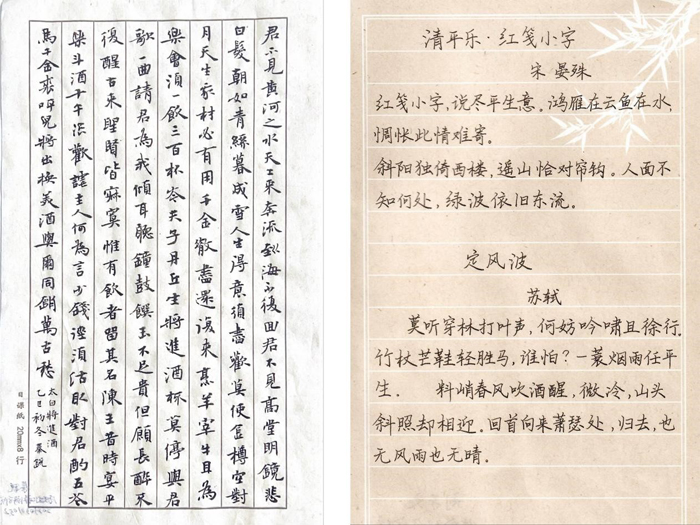 君不見黃河之水天上來奔流到海不復回君不見高堂明鏡悲
白髮朝如青絲暮成雪人生得意須盡歡莫使金樽空對
月天生我材必有用千金散盡還復來烹羊宰牛且為
樂會須一飲三百杯岑夫子丹丘生將進酒杯莫停與君
歌一曲請君為我傾耳聽鐘鼓饌玉不足貴但願長醉不
復醒古來聖賢皆寂寞惟有飲者留其名陳王昔時宴平
樂斗酒十千恣歡謔主人何為言少錢逕須沽取對君酌五花
馬千金裘呼兒將出換美酒與爾同銷萬古愁
太白將進酒
乙巳初冬
日課紙 20mmx8行
清平乐·红笺小字
宋 晏殊
红笺小字,说尽平生意。鸿雁在云鱼在水,
惆怅此情难寄。
斜阳独倚西楼,遥山恰对帘钩。人面不
知何处,绿波依旧东流。
定风波
苏轼
莫听穿林打叶声,何妨吟啸且徐行.
竹杖芒鞋轻胜马,谁怕?一蓑烟雨任平
生. 料峭春风吹酒醒,微冷,山头
斜照却相迎。回首向来萧瑟处,归去,也
无风雨也无晴.